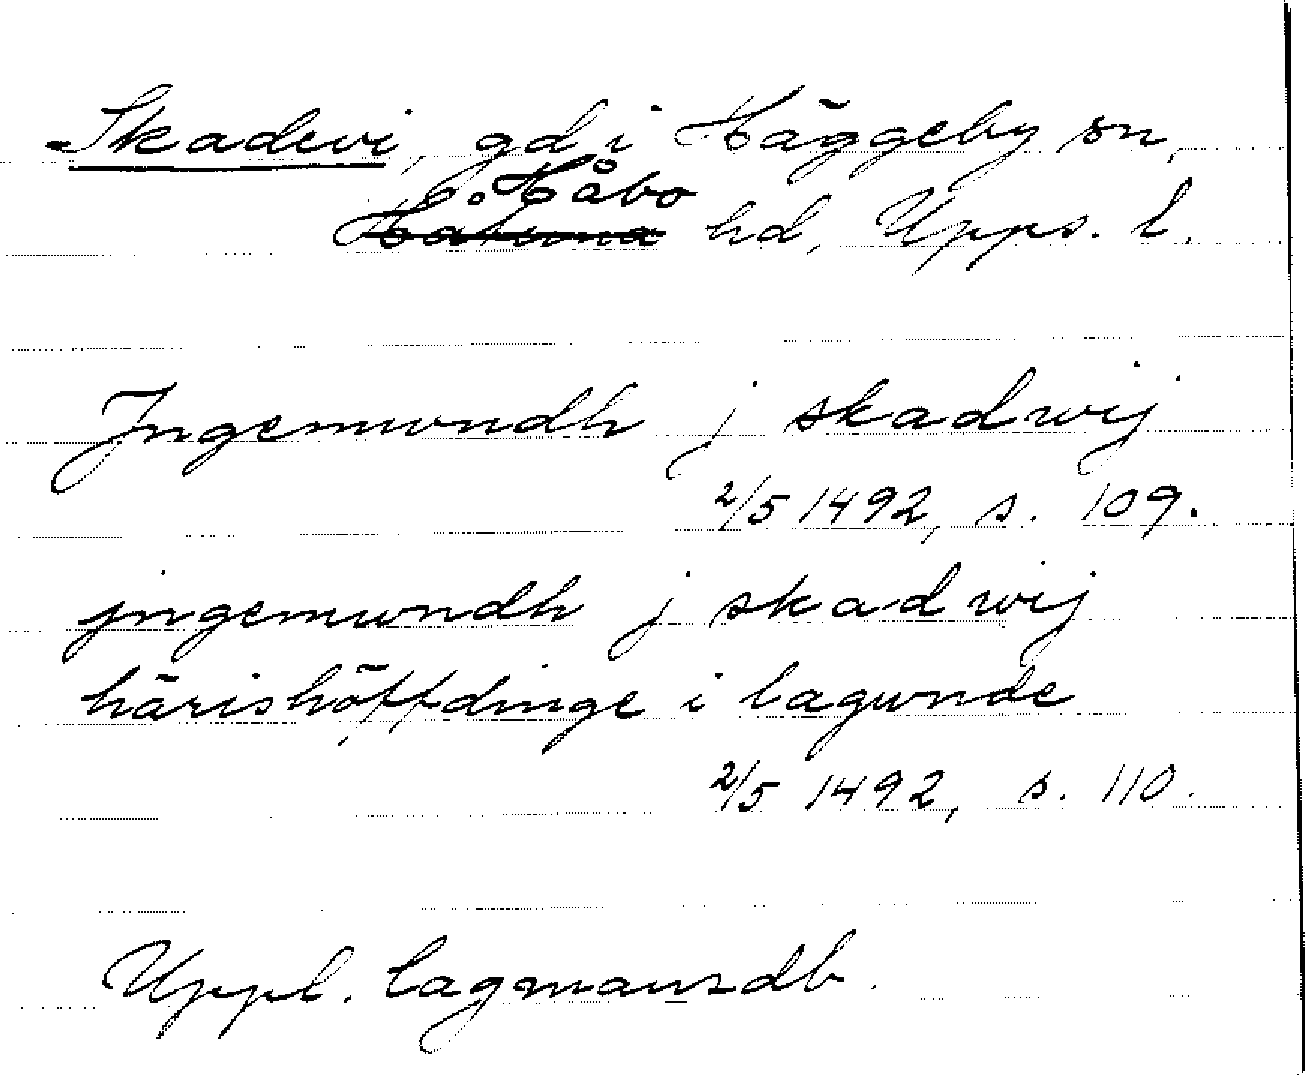 Skadevi, gd i Häggeby sn,
Håbo
hd, Upps. l.
Jngemundh j skadwij
2/5 1492, s. 109.
jngemundh j skadwij
härishöffdinge i lagunde
2/5 1492, s. 110.
Uppl. lagmansdb.